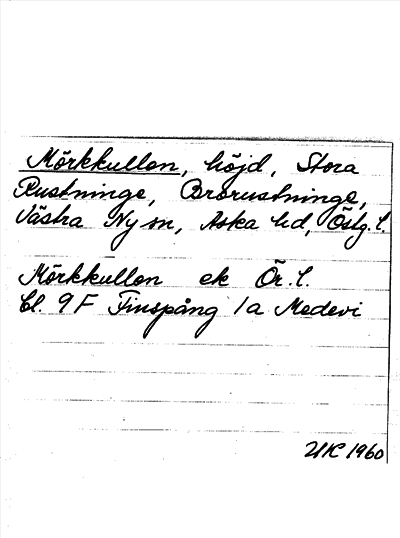 Mörkkullen, höjd, Stora
Rustninge, Brorustninge,
Västra Ny sn, Aska hd, Östg. l.
Mörkkullen ek Ör. l.
bl. 9F Finspång 1a Medevi
UK 1960